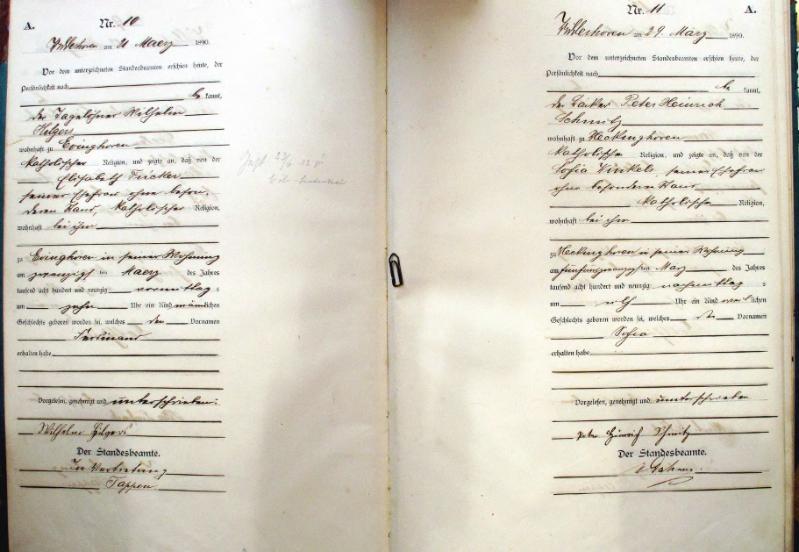 A.
Nr. 10
am 21 Maerz 1890.
Vor dem unterzeichneten Standesbeamten erschien heute, der
Persönlichkeit nach
kannt,
der Tagelöhner Wilhelm
Hilgers
wohnhaft zu Evinghoven
katholischer Religion, und zeigte an, daß von der
Elisabeth Fricker
seiner Ehefrau ohne beson-
deren Stand, katholischer Religion,
wohnhaft bei ihm
zu Evinghoven in seiner Wohnung
am zwanzigst ten Maerz des Jahres
tausend acht hundert und neunzig vormittags
um zehn Uhr ein Kind männlichen
Geschlechts geboren worden sei, welches den Vornamen
Ferdinand
erhalten habe
Vorgelesen, genehmigt und unterschrieben:
Wilhelm Hilgers
Der Standesbeamte.
In Vertretung
Tappen
Nr. 11
A.
am 29. März 1890.
Vor dem unterzeichneten Standesbeamten erschien heute, der
Persönlichkeit nach
be kannt,
der Peter Heinrich
Schmitz
wohnhaft zu Heckinghoven
katholischer Religion, und zeigte an, daß von der
Sofia Vinkels, seiner Ehefrau
ohne besonderen Stand
katholischer Religion,
wohnhaft bei ihm
zu Heckinghoven in seiner Wohnung
am ten März des Jahres
tausend acht hundert und neunzig nachmittags
um Uhr ein Kind weiblichen
Geschlechts geboren worden sei, welches den Vornamen
Sofia
erhalten habe
Vorgelesen, genehmigt und unterschrieben
Peter Heinrich Schmitz
Der Standesbeamte.